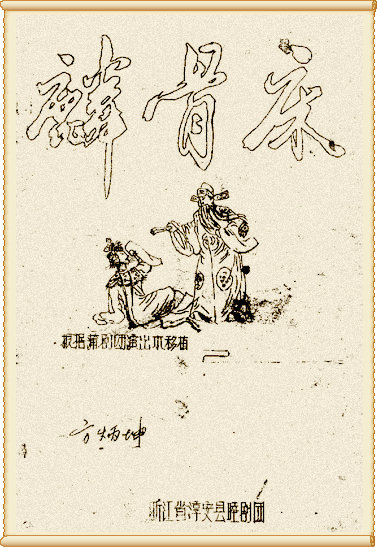 麟骨床
根据蒲剧团演出本移植
方炳坤
浙江省淳安县睦剧团